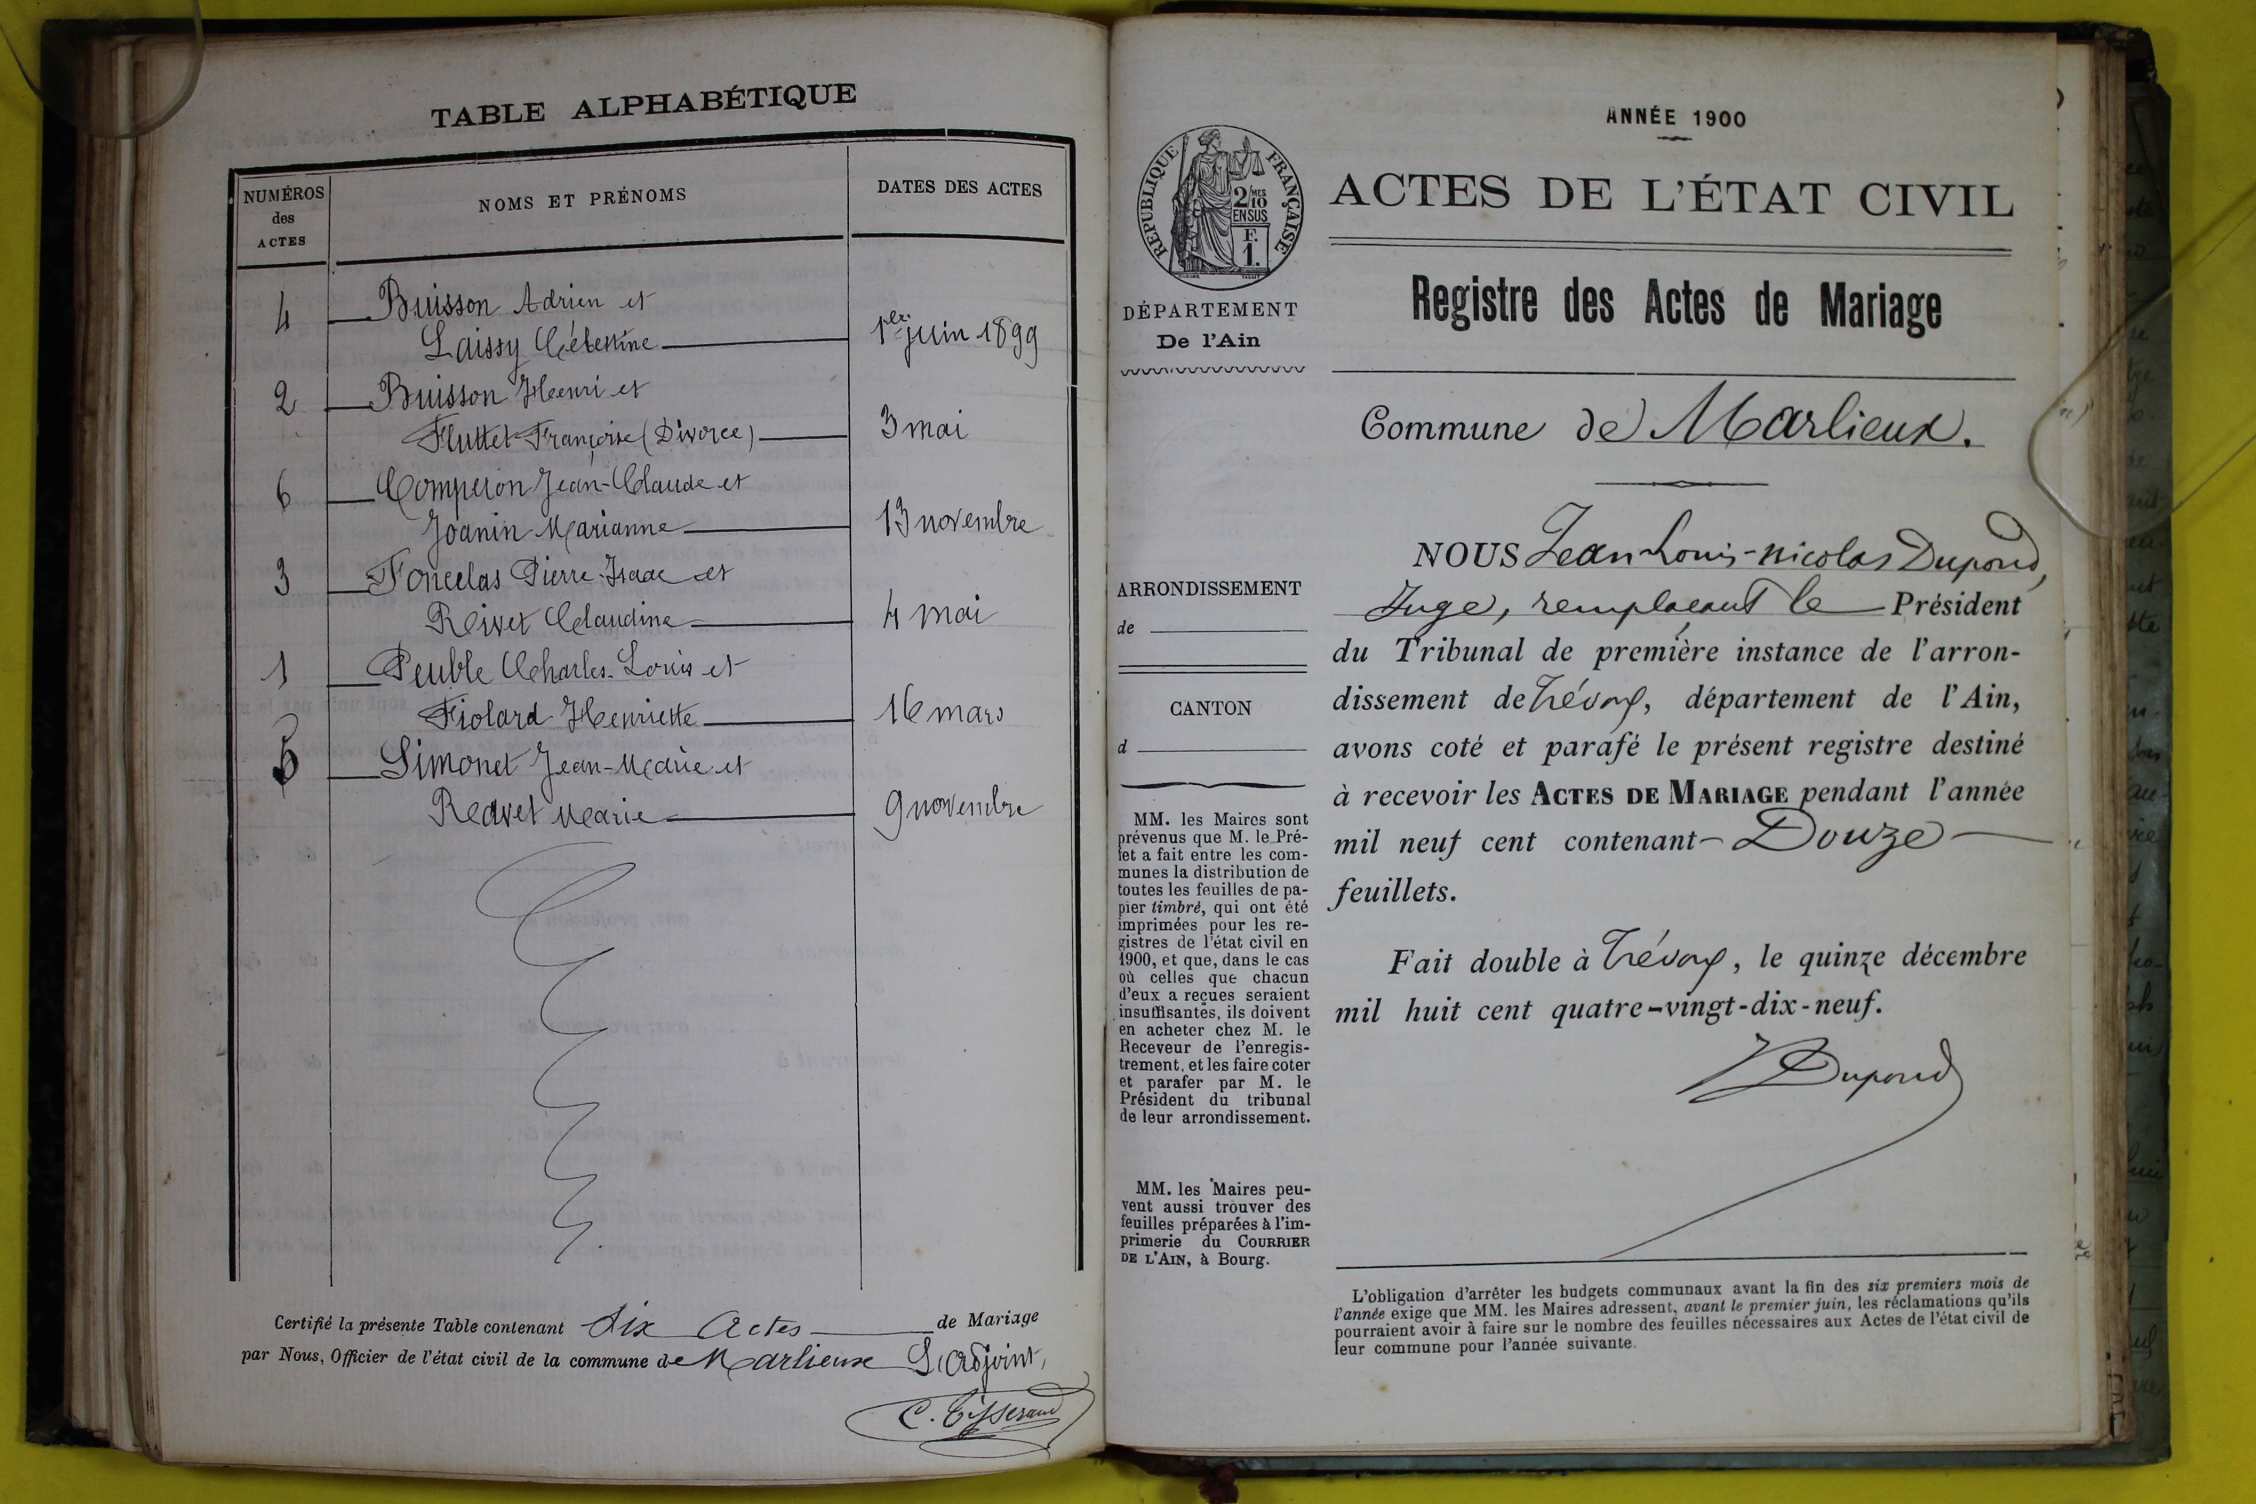 TABLE ALPHABÉTIQUE
NUMÉROS des ACTES
NOMS ET PRÉNOMS
DATES DES ACTES
4 Buisson Adrien et
Laissy Célestine 1er juin 1899
2 Buisson Henri et
Fluttet Françoise (Divorce) 3 mai
6 Comperon Jean-Claude et
Joanin Marianne 13 novembre
3 Foncelas Pierre-Isaac et
Rivet Claudine 4 mai
1 Peuble Charles-Louis et
Fiolard Henriette 16 mars
5 Simonet Jean-Marie et
Ravet Marie 9 novembre
Certifié la présente Table contenant six Actes de Mariage
par Nous, Officier de l'état civil de la commune de Marlieux L'Adjoint,
C. Tisserand
ANNÉE 1900
RÉPUBLIQUE FRANÇAISE
2/10 MES
EN SUS
F.
1.
ACTES DE L'ÉTAT CIVIL
DÉPARTEMENT
De l'Ain
Registre des Actes de Mariage
Commune de Marlieux.
ARRONDISSEMENT
de
CANTON
d
MM. les Maires sont
prévenus que M. le Pré-
fet a fait entre les com-
munes la distribution de
toutes les feuilles de pa-
pier timbré, qui ont été
imprimées pour les re-
gistres de l'état civil en
1900, et que, dans le cas
où celles que chacun
d'eux a reçues seraient
insuffisantes, ils doivent
en acheter chez M. le
Receveur de l'enregis-
trement, et les faire coter
et parafer par M. le
Président du tribunal
de leur arrondissement.
MM. les Maires peu-
vent aussi trouver des
feuilles préparées à l'im-
primerie du COURRIER
DE L'AIN, à Bourg.
NOUS Jean Louis-Nicolas Dupond,
Juge, remplaçant le Président
du Tribunal de première instance de l'arron-
dissement de Trévoux, département de l'Ain,
avons coté et parafé le présent registre destiné
à recevoir les ACTES DE MARIAGE pendant l'année
mil neuf cent contenant Douze
feuillets.
Fait double à Trévoux, le quinze décembre
mil huit cent quatre-vingt-dix-neuf.
Dupond
L'obligation d'arrêter les budgets communaux avant la fin des six premiers mois de
l'année exige que MM. les Maires adressent, avant le premier juin, les réclamations qu'ils
pourraient avoir à faire sur le nombre des feuilles nécessaires aux Actes de l'état civil de
leur commune pour l'année suivante.